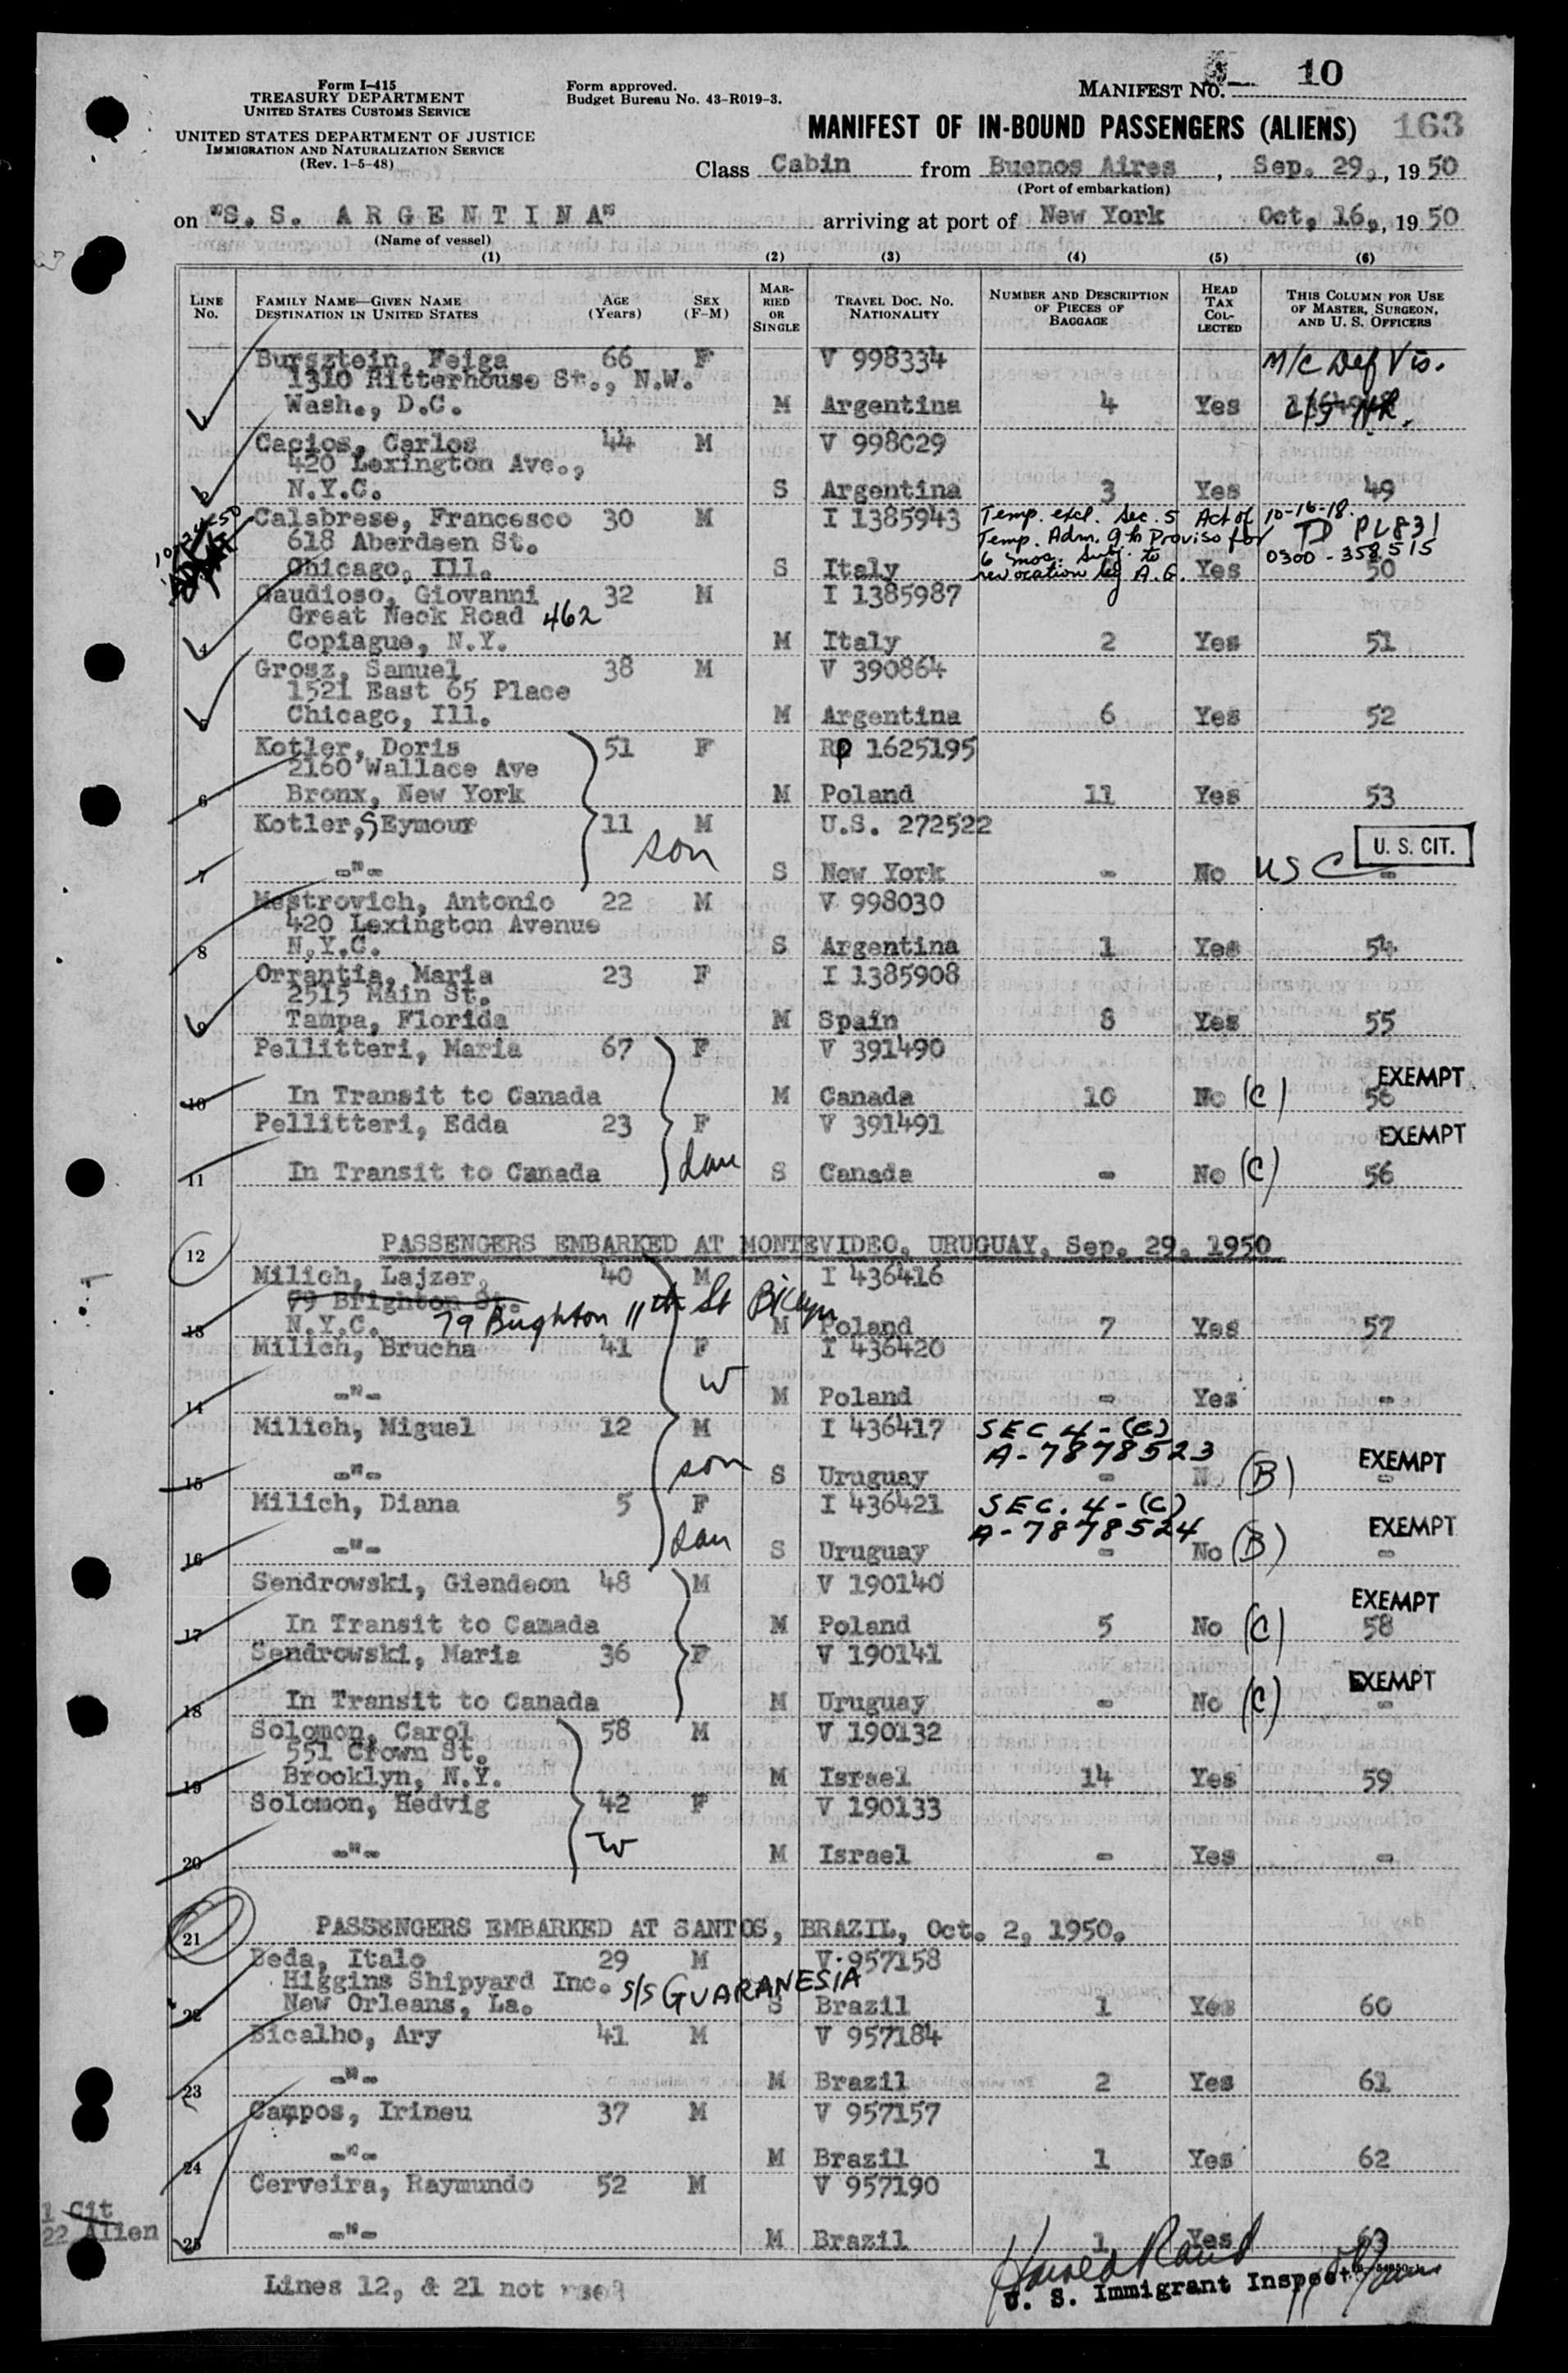 Form I-415
TREASURY DEPARTMENT
UNITED STATES CUSTOMS SERVICE
UNITED STATES DEPARTMENT OF JUSTICE
IMMIGRATION AND NATURALIZATION SERVICE
(Rev. 1-5-48)
Form approved.
Budget Bureau No. 43-R019-3.
MANIFEST NO. 10
MANIFEST OF IN-BOUND PASSENGERS (ALIENS) 163
Class Cabin from Buenos Aires, Sep. 29, 1950
(Port of embarkation)
on "S.S. ARGENTINA" arriving at port of New York Oct. 16, 1950
(Name of vessel)
(1) (2) (3) (4) (5) (6)
LINE NO. FAMILY NAME—GIVEN NAME DESTINATION IN UNITED STATES AGE (Years) SEX (F-M) MARRIED OR SINGLE TRAVEL DOC. NO. NATIONALITY NUMBER AND DESCRIPTION OF PIECES OF BAGGAGE HEAD TAX COLLECTED THIS COLUMN FOR USE OF MASTER, SURGEON, AND U. S. OFFICERS
Bursztein, Feiga 66 F V 998334 M/C Def Vis.
1310 Ritterhouse St., N.W.
Wash., D.C. M Argentina 4 Yes
Cacios, Carlos 44 M V 998029
420 Lexington Ave.,
2 N.Y.C. S Argentina 3 Yes 49
Calabrese, Francesco 30 M I 1385943 Temp. excl. Sec. 5 Act of 10-16-18.
618 Aberdeen St. Temp. Adm. 9th Proviso for TD PL831
6 mos. Subj. to 0300-358515
Chicago, Ill. S Italy revocation by A.G. Yes 50
Gaudioso, Giovanni 32 M I 1385987
Great Neck Road 462
4 Copiague, N.Y. M Italy 2 Yes 51
Grosz, Samuel 38 M V 390864
1521 East 65 Place
5 Chicago, Ill. M Argentina 6 Yes 52
Kotler, Doris 51 F RP 1625195
2160 Wallace Ave
6 Bronx, New York M Poland 11 Yes 53
Kotler, SEymour 11 M U.S. 272522
son U. S. CIT.
7 -"- S New York - No USC -
Mestrovich, Antonio 22 M V 998030
420 Lexington Avenue
8 N.Y.C. S Argentina 1 Yes 54
Orrantia, Maria 23 F I 1385908
2515 Main St.
9 Tampa, Florida M Spain 8 Yes 55
Pellitteri, Maria 67 F V 391490
EXEMPT
10 In Transit to Canada M Canada 10 No (C) 56
Pellitteri, Edda 23 F V 391491 EXEMPT
11 In Transit to Canada dau S Canada - No (C) 56
12 PASSENGERS EMBARKED AT MONTEVIDEO, URUGUAY, Sep. 29, 1950
Milich, Lajzer, 40 M I 436416
79 Brighton St.
79 Brighton 11th St Bklyn
13 N.Y.C. M Poland 7 Yes 57
Milich, Brucha 41 F I 436420
w
14 -"- M Poland - Yes -
Milich, Miguel 12 M I 436417 SEC 4-(C)
A-7878523
15 -"- son S Uruguay - No (B) EXEMPT -
Milich, Diana 5 F I 436421 SEC. 4-(C)
A-7878524
16 -"- dau S Uruguay - No (B) EXEMPT -
Sendrowski, Giendeon 48 M V 190140
EXEMPT
17 In Transit to Camada M Poland 5 No (C) 58
Sendrowski, Maria 36 F V 190141
EXEMPT
18 In Transit to Canada M Uruguay - No (C) -
Solomon, Carol 58 M V 190132
551 Crown St.
19 Brooklyn, N.Y. M Israel 14 Yes 59
Solomon, Hedvig 42 F V 190133
w
20 -"- M Israel - Yes -
21 PASSENGERS EMBARKED AT SANTOS, BRAZIL, Oct. 2, 1950.
Beda, Italo 29 M V 957158
Higgins Shipyard Inc. S/S GUARANESIA
22 New Orleans, La. S Brazil 1 Yes 60
Bicalho, Ary 41 M V 957184
23 -"- M Brazil 2 Yes 61
Campos, Irineu 37 M V 957157
24 -"- M Brazil 1 Yes 62
Cerveira, Raymundo 52 M V 957190
1 Cit
22 Alien
25 -"- M Brazil 1 Yes 63
Lines 12, & 21 not used
U. S. Immigrant Inspector